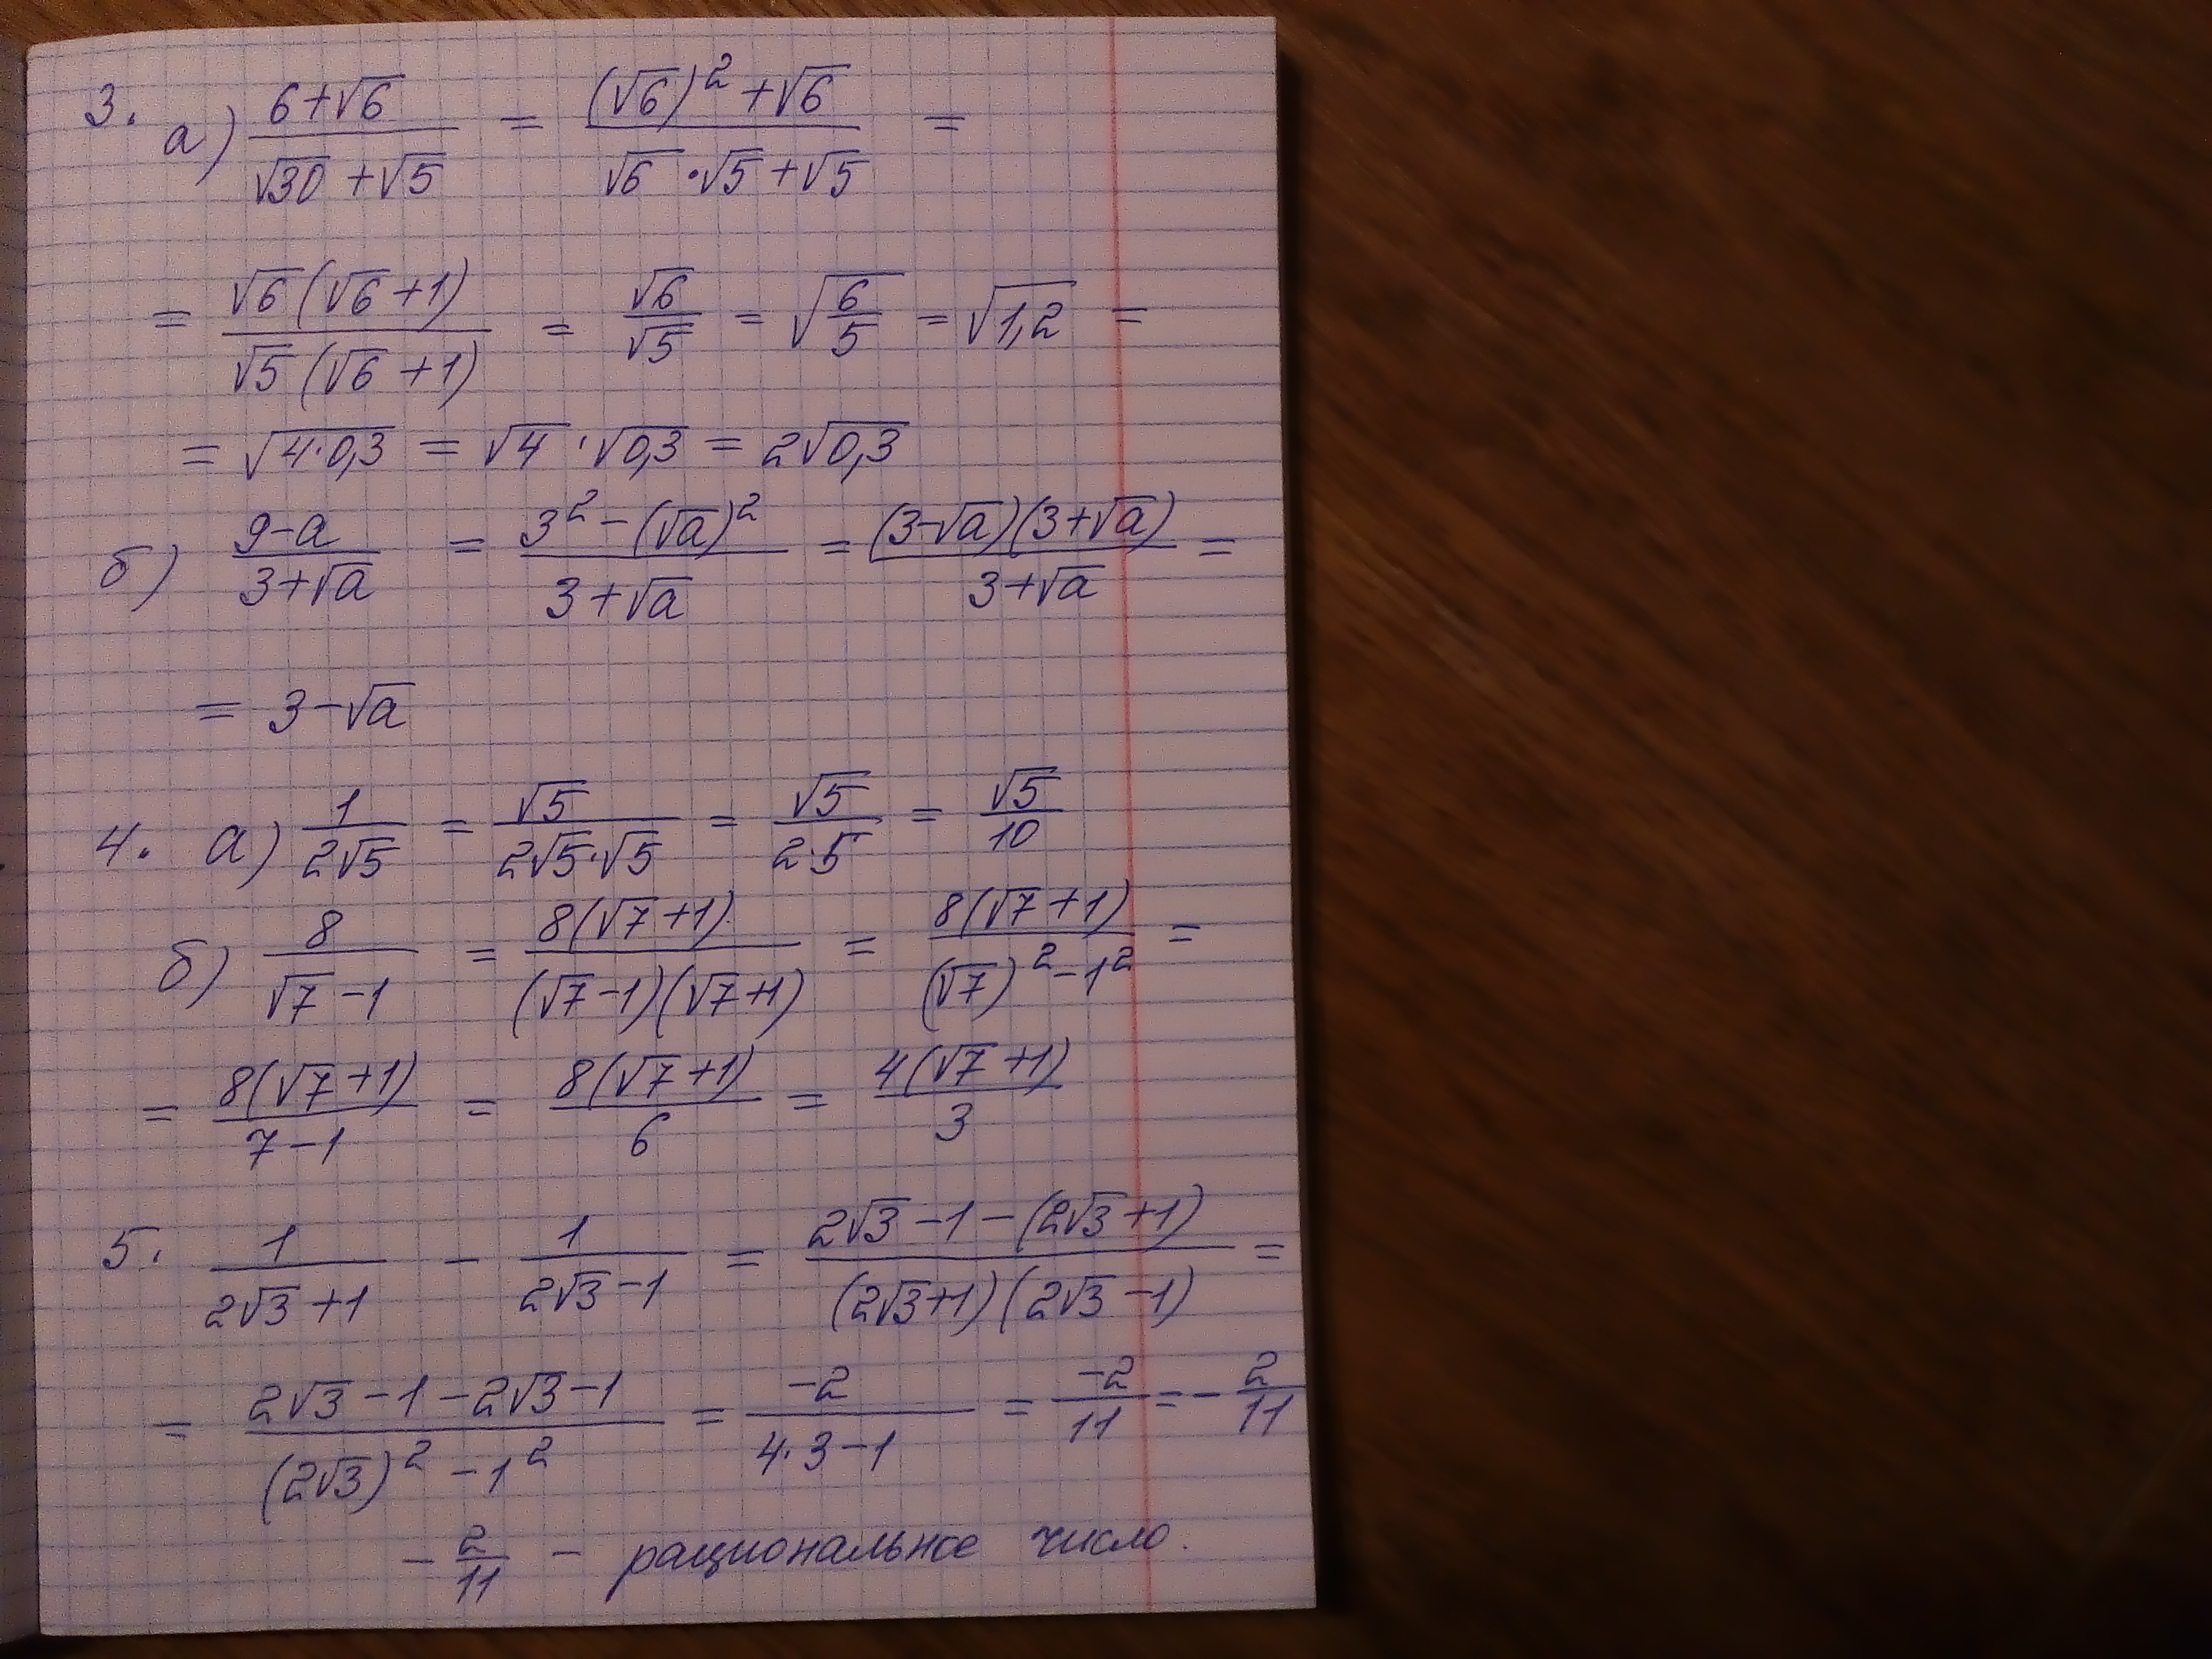 3. а) (6+√6)/(√30+√5) = ((√6)²+√6)/(√6·√5+√5) =
= (√6(√6+1))/(√5(√6+1)) = √6/√5 = √(6/5) = √1,2 =
= √(4·0,3) = √4·√0,3 = 2√0,3
б) (9-a)/(3+√a) = (3²-(√a)²)/(3+√a) = ((3-√a)(3+√a))/(3+√a) =
= 3-√a
4. а) 1/(2√5) = √5/(2√5·√5) = √5/(2·5) = √5/10
б) 8/(√7-1) = (8(√7+1))/((√7-1)(√7+1)) = (8(√7+1))/((√7)²-1²) =
= (8(√7+1))/(7-1) = (8(√7+1))/6 = (4(√7+1))/3
5. 1/(2√3+1) - 1/(2√3-1) = (2√3-1-(2√3+1))/((2√3+1)(2√3-1)) =
= (2√3-1-2√3-1)/((2√3)²-1²) = -2/(4·3-1) = -2/11 = -2/11
-2/11 - рациональное число.